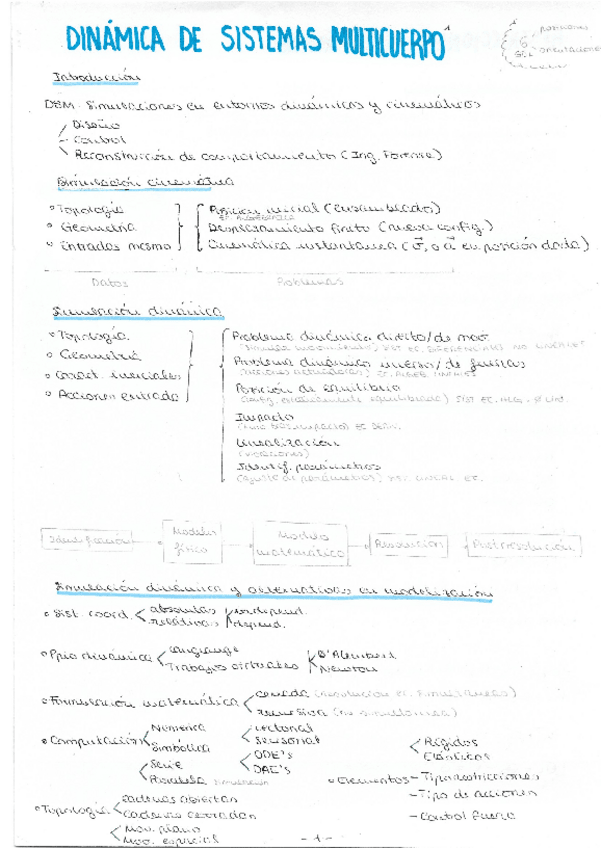 DINÁMICA DE SISTEMAS MULTICUERPO
posiciones
6
GDL orientaciones
Introducción
DSM: Simulaciones en entornos dinámicos y cinemáticos
Diseño
Control
Reconstrucción de comportamiento (Ing. Forense)
Simulación cinemática
Topología
Geometría
Entradas mesmo
Posición inicial (ensamblado)
Desplazamiento finito (nueva config.)
Cinemática instantánea (v, o a en posición dada)
Datos
Problemas
Simulación dinámica
Topología
Geometría
Caract. inerciales
Acciones entrada
Problema dinámico directo/de mov.
SIST EC. DIFERENCIALES NO LINEALES
Problema dinámico inverso/de fuerzas
EC. ALGEB. LINEALES
Posición de equilibrio
Impacto
Linealización
(vibraciones)
Identif. parámetros
(ajuste de parámetros) SIST. LINEAL EC.
Identificación
Modelo físico
Modelo matemático
Resolución
Postresolución
Simulación dinámica y alternativas en modelización
Sist. coord. absolutas independ.
relativas depend.
Ppio dinámica Lagrange
Trabajos virtuales D'Alembert
Newton
Formulación matemática cerrada (resolución ec. simultáneas)
recursiva (no simultánea)
Computación Numérica
Simbólica
Serie
Paralela
vectorial
Secuencial
ODE's
DAE's
Elementos Rígidos
Elásticos
- Tipo restricciones
- Tipo de acciones
- Control fuerza
Topología cadenas abiertas
cadenas cerradas
Mov. plano
Mov. espacial
- 1 -